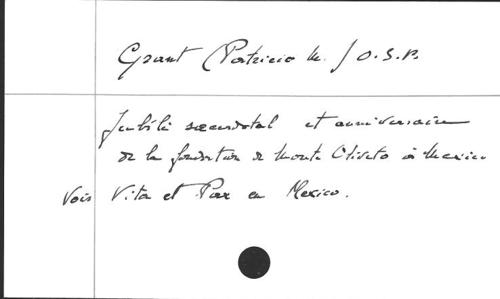 Grant (Patricio M.) O.S.B.
Jubilé sacerdotal et anniversaire
de la fondation de Monte Oliveto à Mexico
Vois Vita et Pax en Mexico.